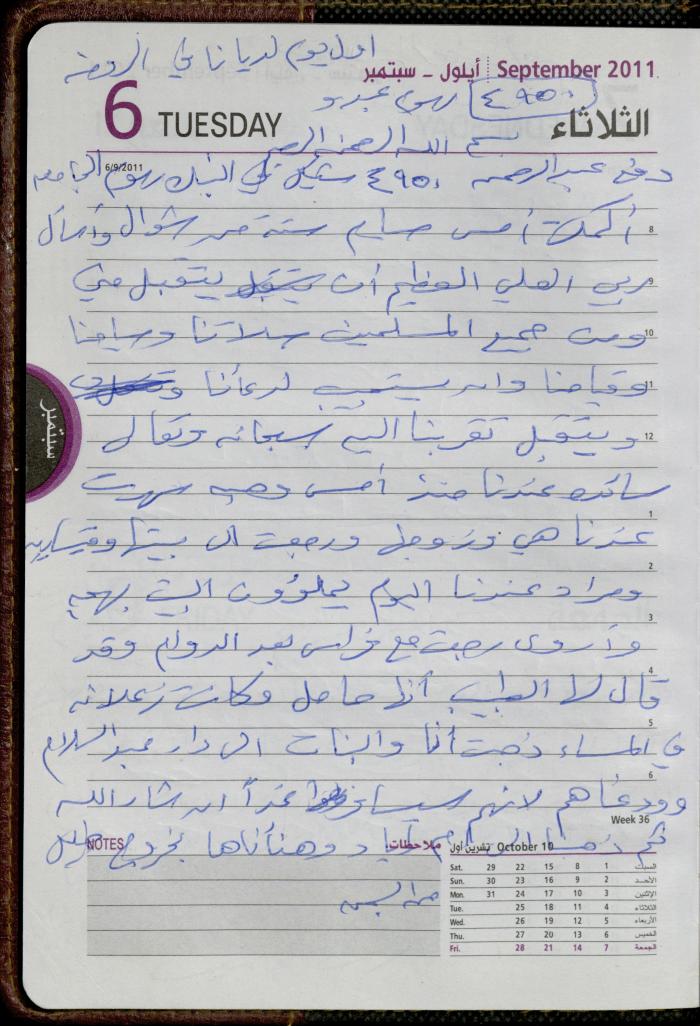 اول يوم لديانا في الروضة
أيلول ـ سبتمبر September 2011
٤٩٥٠ رسوم عبدو
6 TUESDAY الثلاثاء
بسم الله الرحمن الرحيم
6/9/2011
دفع عبد الرحمن ٤٩٥٠ شيكل في البنك رسوم الجامعة
أكملت أمس صيام ستة من شوال وأسأل
ربي العلي العظيم أن يتقبل مني
ومن جميع المسلمين صلاتنا وصيامنا
وقيامنا وان يستجيب لدعائنا
ويتقبل تقربنا اليه سبحانه وتعالى
سائده عندنا منذ أمس وهبه سهرت
عندنا هي وزوجها ورجعت الى بيتها وقيس
ومراد عندنا اليوم يملؤون البيت بهجة
وأروى رجعت مع فراس بعد الدوام وقد
قال لها الطبيب أنها حامل وكانت زعلانه
في المساء ذهبت أنا والبنات الى دار عبد السلام
وودعناهم لانهم سيسافروا غداً ان شاء الله
ثم ذهبنا الى ام وهنأناها بخروج
من السجن
8
9
10
11
12
1
2
3
4
5
6
سبتمبر
Week 36
NOTES ملاحظات:
October 10 تشرين أول
Sat. 29 22 15 8 1 السبت
Sun. 30 23 16 9 2 الأحد
Mon. 31 24 17 10 3 الإثنين
Tue. 25 18 11 4 الثلاثاء
Wed. 26 19 12 5 الأربعاء
Thu. 27 20 13 6 الخميس
Fri. 28 21 14 7 الجمعة